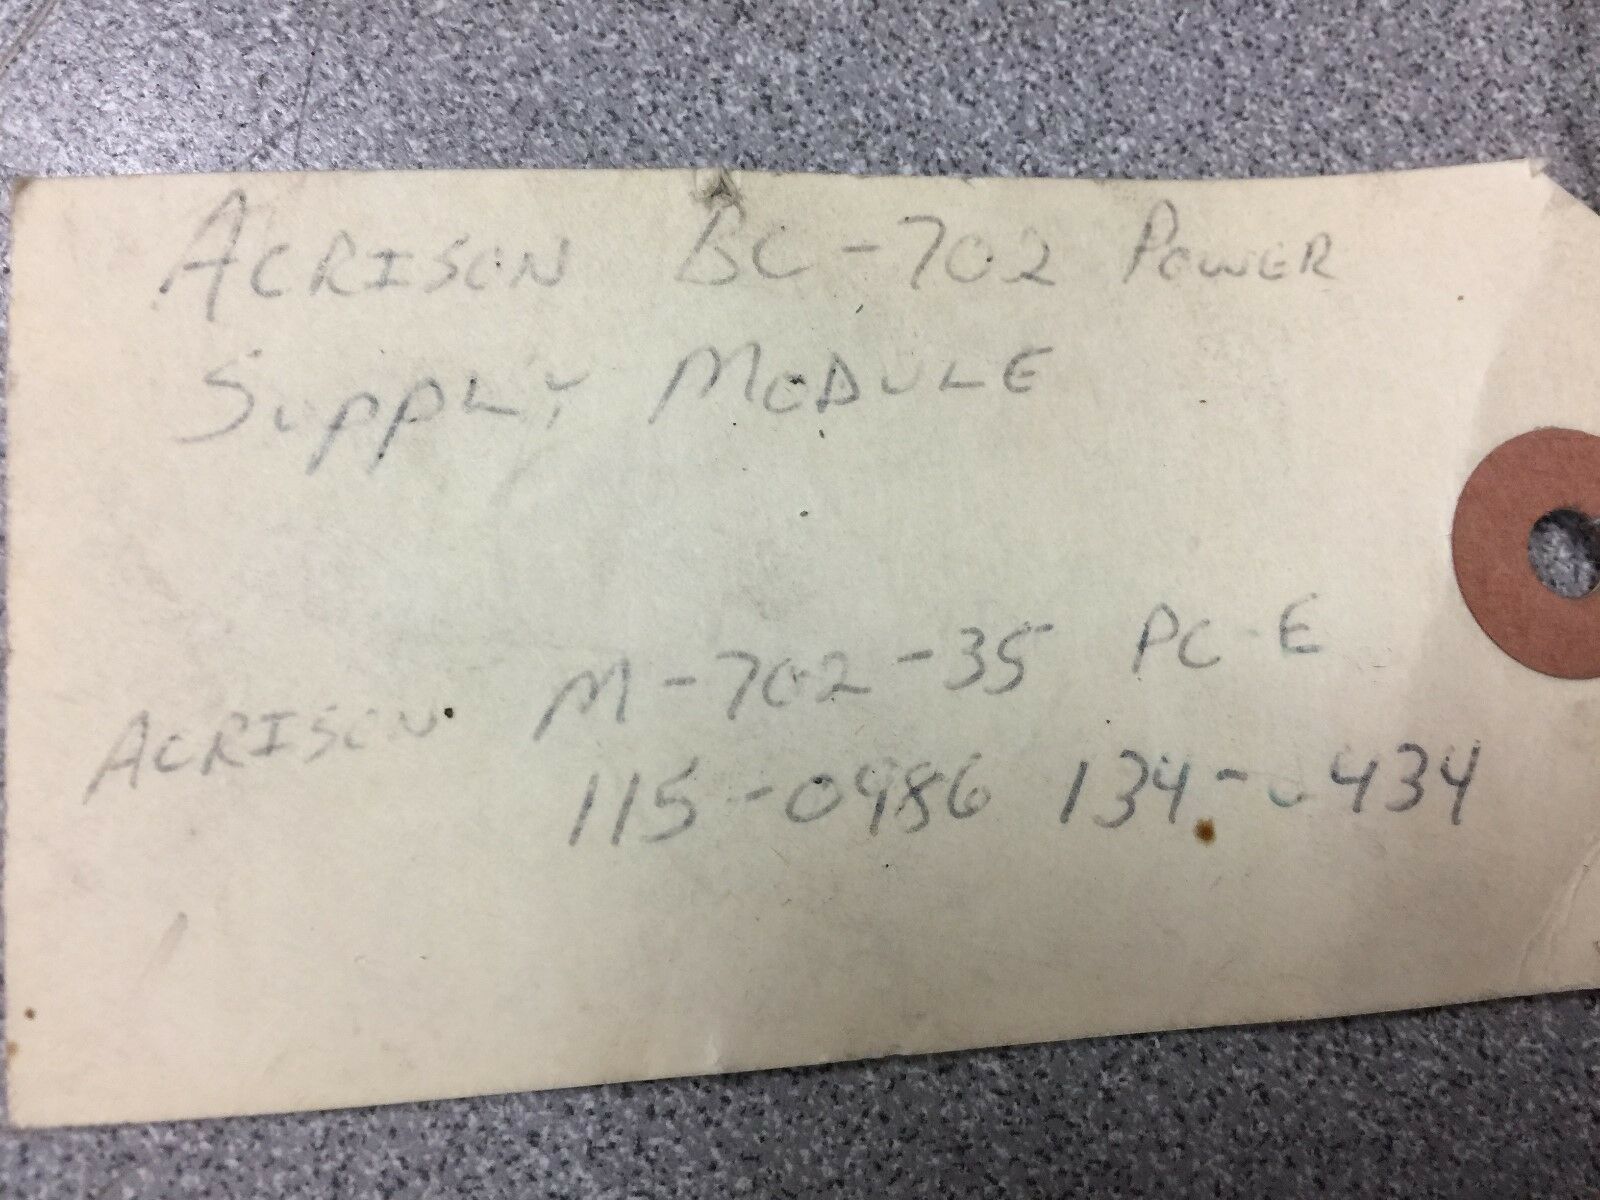 ACRISON BC-702 POWER
SUPPLY MODULE
ACRISON M-702-35 PC-E
115-0986 134-0434